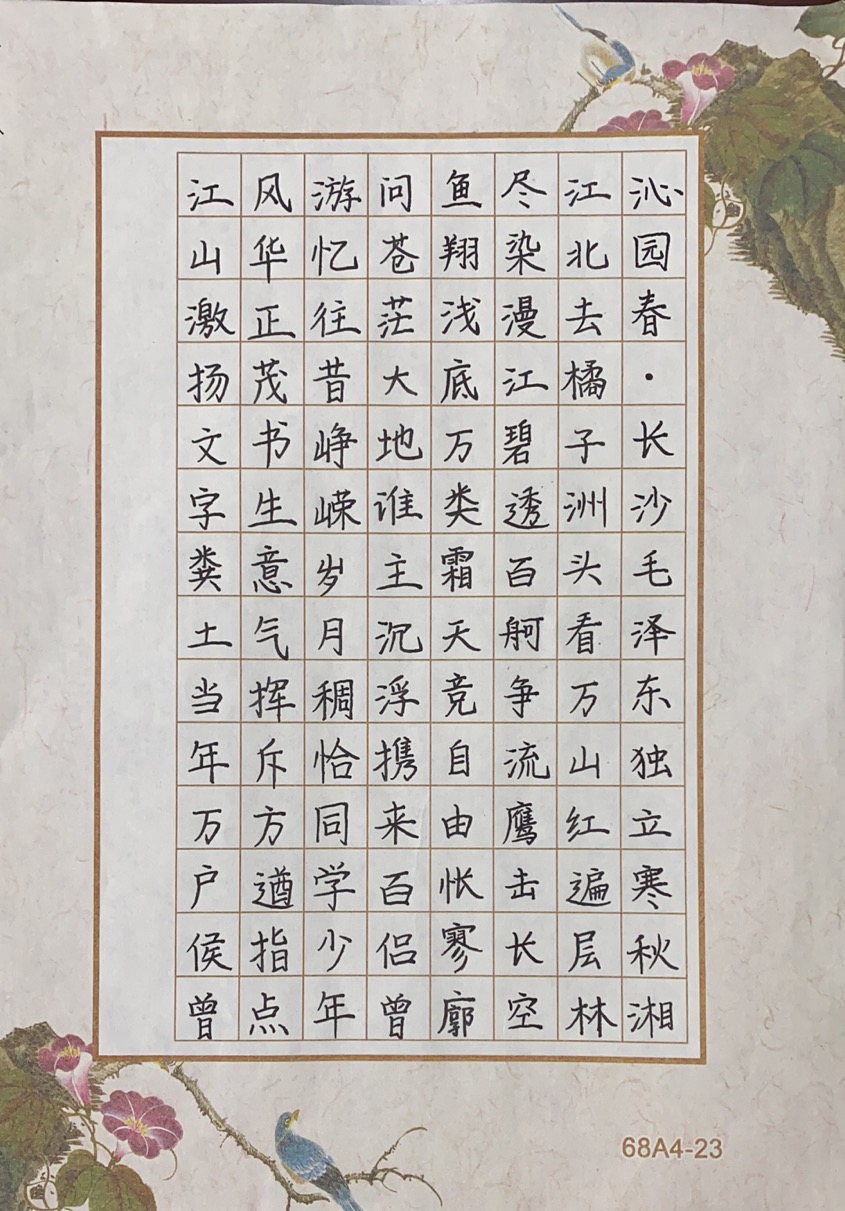 沁园春·长沙毛泽东独立寒秋湘
江北去橘子洲头看万山红遍层林
尽染漫江碧透百舸争流鹰击长空
鱼翔浅底万类霜天竞自由怅寥廓
问苍茫大地谁主沉浮携来百侣曾
游忆往昔峥嵘岁月稠恰同学少年
风华正茂书生意气挥斥方遒指点
江山激扬文字粪土当年万户侯曾
68A4-23